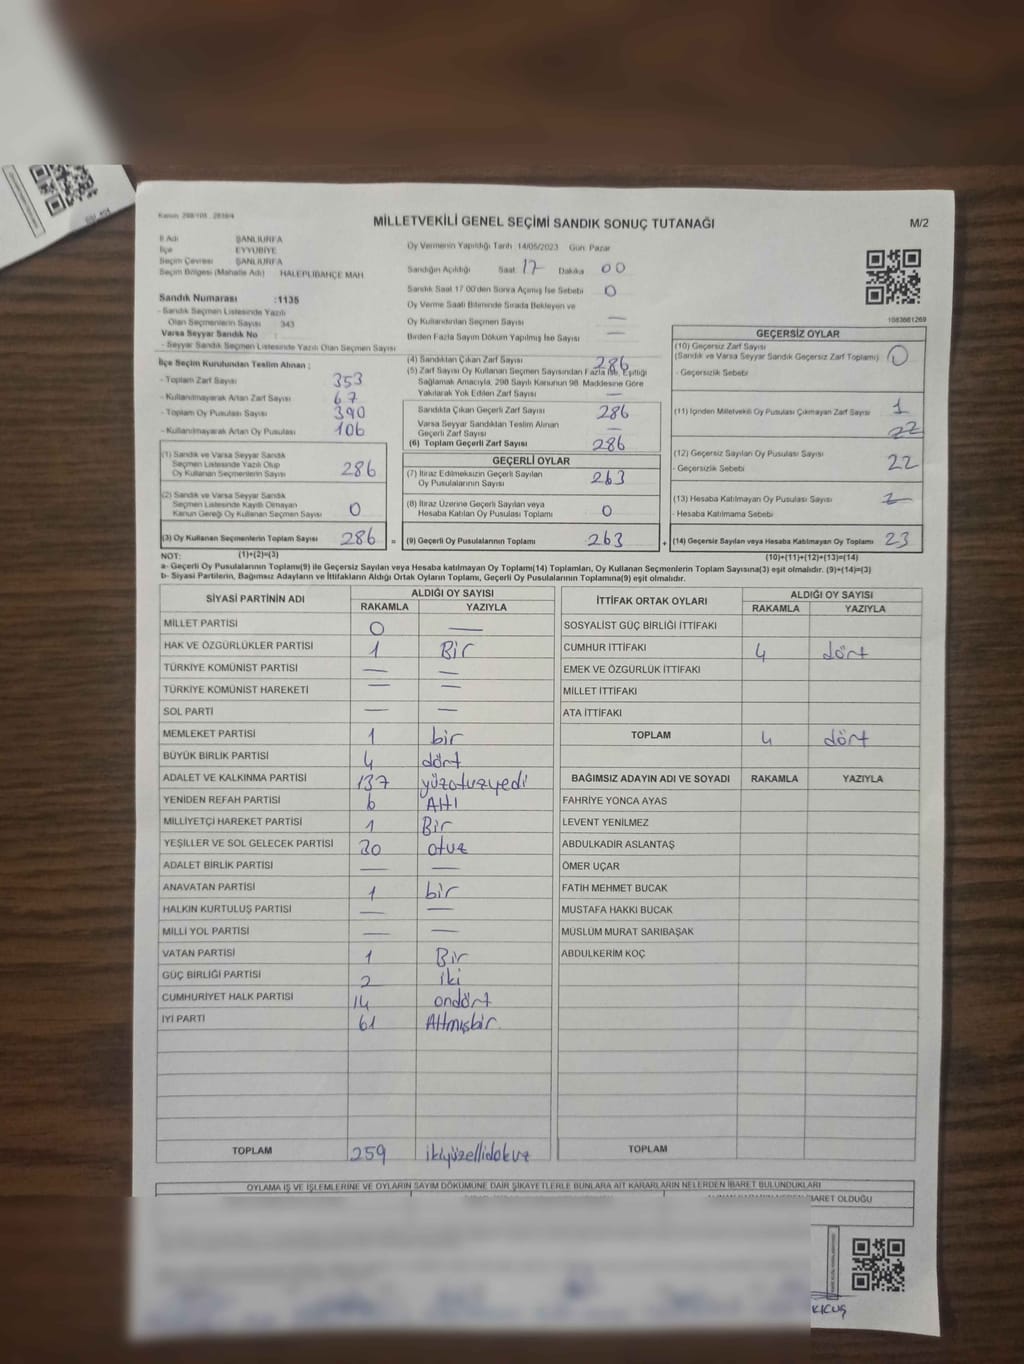 Kanun: 298/105 , 2839/4
MİLLETVEKİLİ GENEL SEÇİMİ SANDIK SONUÇ TUTANAĞI M/2
İl Adı ŞANLIURFA
İlçe EYYÜBİYE
Seçim Çevresi ŞANLIURFA
Seçim Bölgesi (Mahalle Adı) HALEPLİBAHÇE MAH
Sandık Numarası :1135
- Sandık Seçmen Listesinde Yazılı
Olan Seçmenlerin Sayısı 343
Varsa Seyyar Sandık No :
- Seyyar Sandık Seçmen Listesinde Yazılı Olan Seçmen Sayısı
Oy Vermenin Yapıldığı Tarih 14/05/2023 Gün: Pazar
Sandığın Açıldığı Saat 17 Dakika 00
Sandık Saat 17:00'den Sonra Açılmış İse Sebebi 0
Oy Verme Saati Bitiminde Sırada Bekleyen ve
Oy Kullandırılan Seçmen Sayısı —
Birden Fazla Sayım Döküm Yapılmış İse Sayısı —
1083661269
İlçe Seçim Kurulundan Teslim Alınan :
- Toplam Zarf Sayısı 353
- Kullanılmayarak Artan Zarf Sayısı 67
- Toplam Oy Pusulası Sayısı 390
- Kullanılmayarak Artan Oy Pusulası 106
(1) Sandık ve Varsa Seyyar Sandık
Seçmen Listesinde Yazılı Olup
Oy Kullanan Seçmenlerin Sayısı 286
(2) Sandık ve Varsa Seyyar Sandık
Seçmen Listesinde Kayıtlı Olmayan
Kanun Gereği Oy Kullanan Seçmen Sayısı 0
(3) Oy Kullanan Seçmenlerin Toplam Sayısı 286 =
(4) Sandıktan Çıkan Zarf Sayısı 286
(5) Zarf Sayısı Oy Kullanan Seçmen Sayısından Fazla İse, Eşitliği
Sağlamak Amacıyla, 298 Sayılı Kanunun 98. Maddesine Göre
Yakılarak Yok Edilen Zarf Sayısı —
Sandıkta Çıkan Geçerli Zarf Sayısı 286
Varsa Seyyar Sandıktan Teslim Alınan
Geçerli Zarf Sayısı —
(6) Toplam Geçerli Zarf Sayısı 286
GEÇERLİ OYLAR
(7) İtiraz Edilmeksizin Geçerli Sayılan
Oy Pusulalarının Sayısı 263
(8) İtiraz Üzerine Geçerli Sayılan veya
Hesaba Katılan Oy Pusulası Toplamı 0
(9) Geçerli Oy Pusulalarının Toplamı 263 +
GEÇERSİZ OYLAR
(10) Geçersiz Zarf Sayısı
(Sandık ve Varsa Seyyar Sandık Geçersiz Zarf Toplamı) 0
- Geçersizlik Sebebi
(11) İçinden Milletvekili Oy Pusulası Çıkmayan Zarf Sayısı 1
22
(12) Geçersiz Sayılan Oy Pusulası Sayısı 22
- Geçersizlik Sebebi
(13) Hesaba Katılmayan Oy Pusulası Sayısı
- Hesaba Katılmama Sebebi
(14) Geçersiz Sayılan veya Hesaba Katılmayan Oy Toplamı 23
NOT: (1)+(2)=(3) (10)+(11)+(12)+(13)=(14)
a- Geçerli Oy Pusulalarının Toplamı(9) ile Geçersiz Sayılan veya Hesaba katılmayan Oy Toplamı(14) Toplamları, Oy Kullanan Seçmenlerin Toplam Sayısına(3) eşit olmalıdır. (9)+(14)=(3)
b- Siyasi Partilerin, Bağımsız Adayların ve İttifakların Aldığı Ortak Oyların Toplamı, Geçerli Oy Pusulalarının Toplamına(9) eşit olmalıdır.
SİYASİ PARTİNİN ADI ALDIĞI OY SAYISI
RAKAMLA YAZIYLA
MİLLET PARTİSİ 0 —
HAK VE ÖZGÜRLÜKLER PARTİSİ 1 Bir
TÜRKİYE KOMÜNİST PARTİSİ — —
TÜRKİYE KOMÜNİST HAREKETİ — —
SOL PARTİ — —
MEMLEKET PARTİSİ 1 bir
BÜYÜK BİRLİK PARTİSİ 4 dört
ADALET VE KALKINMA PARTİSİ 137 yüzotuzyedi
YENİDEN REFAH PARTİSİ 6 Altı
MİLLİYETÇİ HAREKET PARTİSİ 1 Bir
YEŞİLLER VE SOL GELECEK PARTİSİ 30 otuz
ADALET BİRLİK PARTİSİ — —
ANAVATAN PARTİSİ 1 bir
HALKIN KURTULUŞ PARTİSİ — —
MİLLİ YOL PARTİSİ — —
VATAN PARTİSİ 1 Bir
GÜÇ BİRLİĞİ PARTİSİ 2 iki
CUMHURİYET HALK PARTİSİ 14 ondört
İYİ PARTİ 61 Altmışbir.
TOPLAM 259 ikiyüzellidokuz
İTTİFAK ORTAK OYLARI ALDIĞI OY SAYISI
RAKAMLA YAZIYLA
SOSYALİST GÜÇ BİRLİĞİ İTTİFAKI
CUMHUR İTTİFAKI 4 dört
EMEK VE ÖZGÜRLÜK İTTİFAKI
MİLLET İTTİFAKI
ATA İTTİFAKI
TOPLAM 4 dört
BAĞIMSIZ ADAYIN ADI VE SOYADI RAKAMLA YAZIYLA
FAHRİYE YONCA AYAS
LEVENT YENİLMEZ
ABDULKADİR ASLANTAŞ
ÖMER UÇAR
FATİH MEHMET BUCAK
MUSTAFA HAKKI BUCAK
MÜSLÜM MURAT SARIBAŞAK
ABDULKERİM KOÇ
TOPLAM
OYLAMA İŞ VE İŞLEMLERİNE VE OYLARIN SAYIM DÖKÜMÜNE DAİR ŞİKAYETLERLE BUNLARA AİT KARARLARIN NELERDEN İBARET BULUNDUKLARI
İBARET OLDUĞU